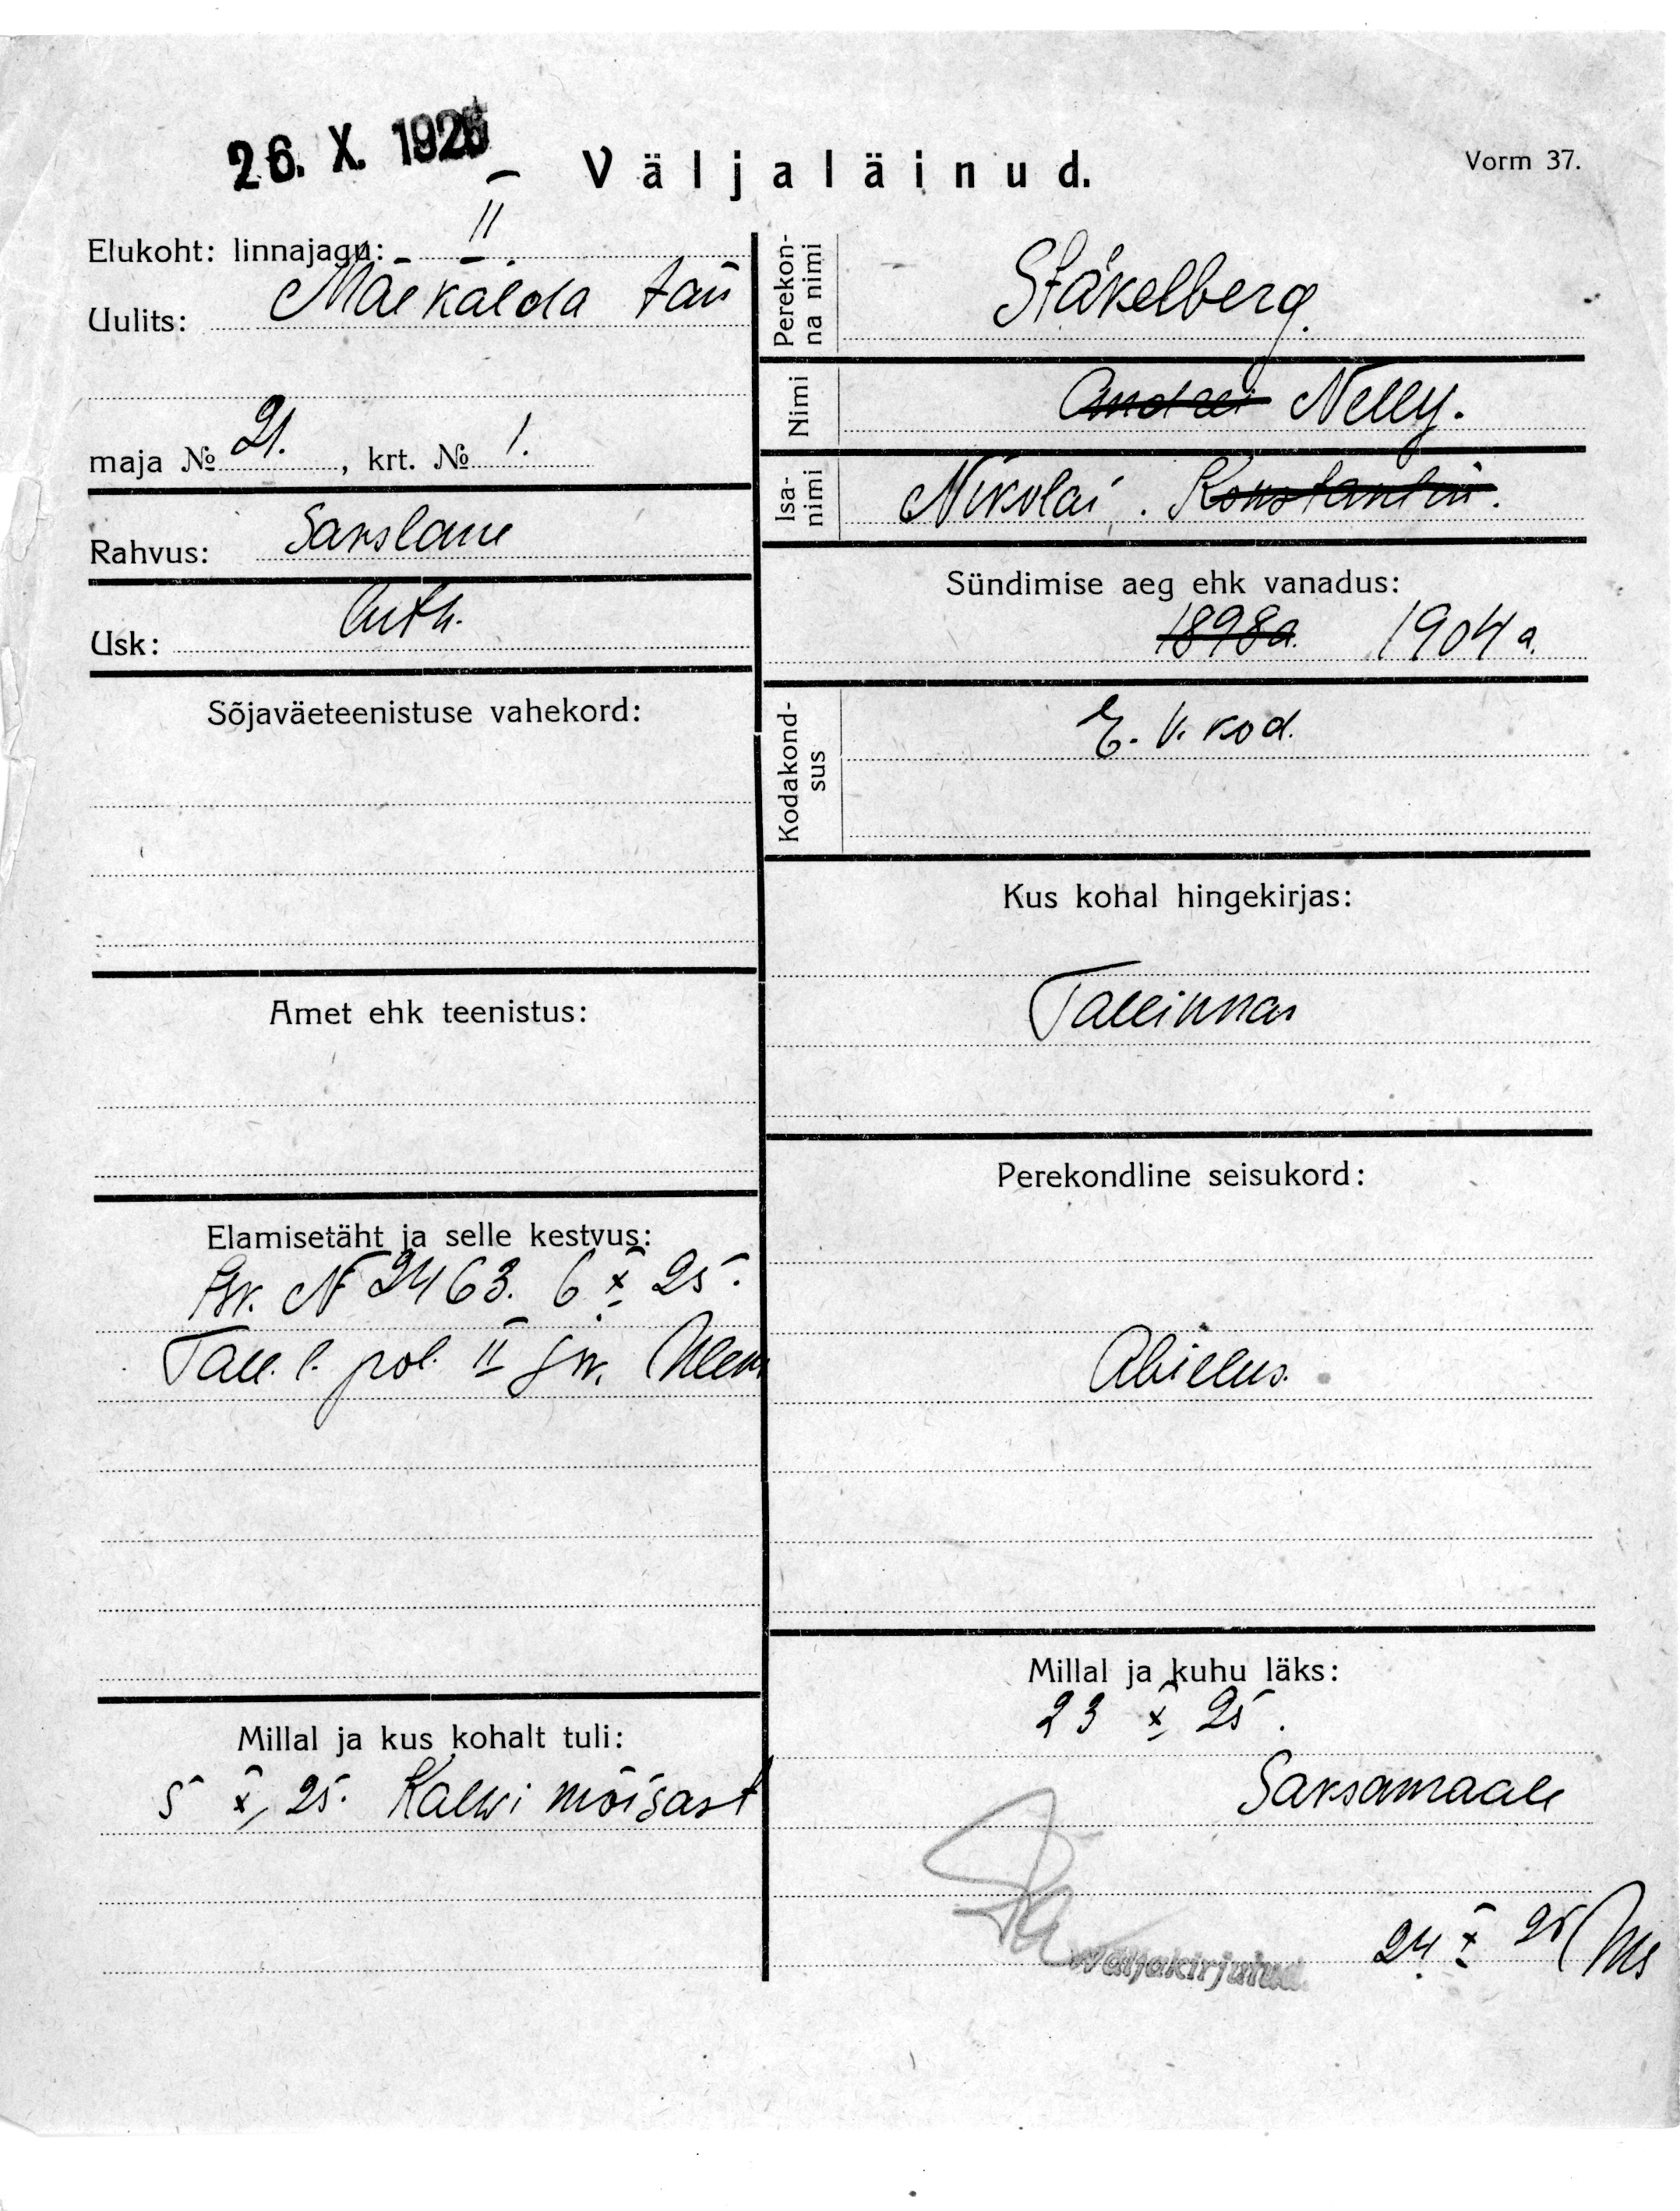 26. X. 1925
Väljaläinud.
Vorm 37.
Elukoht: linnajagu: II
Uulits: Mäekalda tän
maja № 21. , krt. № 1.
Rahvus: Sakslane
Usk: Luth.
Sõjaväeteenistuse vahekord:
Amet ehk teenistus:
Elamisetäht ja selle kestvus:
N 2463. 6 X 25.
Tall. l. pol. II jsk.
Millal ja kus kohalt tuli:
5 X 25. Kalwi mõisast
Perekonna nimi Stäkelberg.
Nimi Andrei Nelly.
Isanimi Nikolai. Konstantin.
Sündimise aeg ehk vanadus:
1898a. 1904 a.
Kodakondsus E. V. kod.
Kus kohal hingekirjas:
Tallinnas
Perekondline seisukord:
Abielus.
Millal ja kuhu läks:
23 X 25.
Saksamaale
Waljakirjutud.
24 X 25